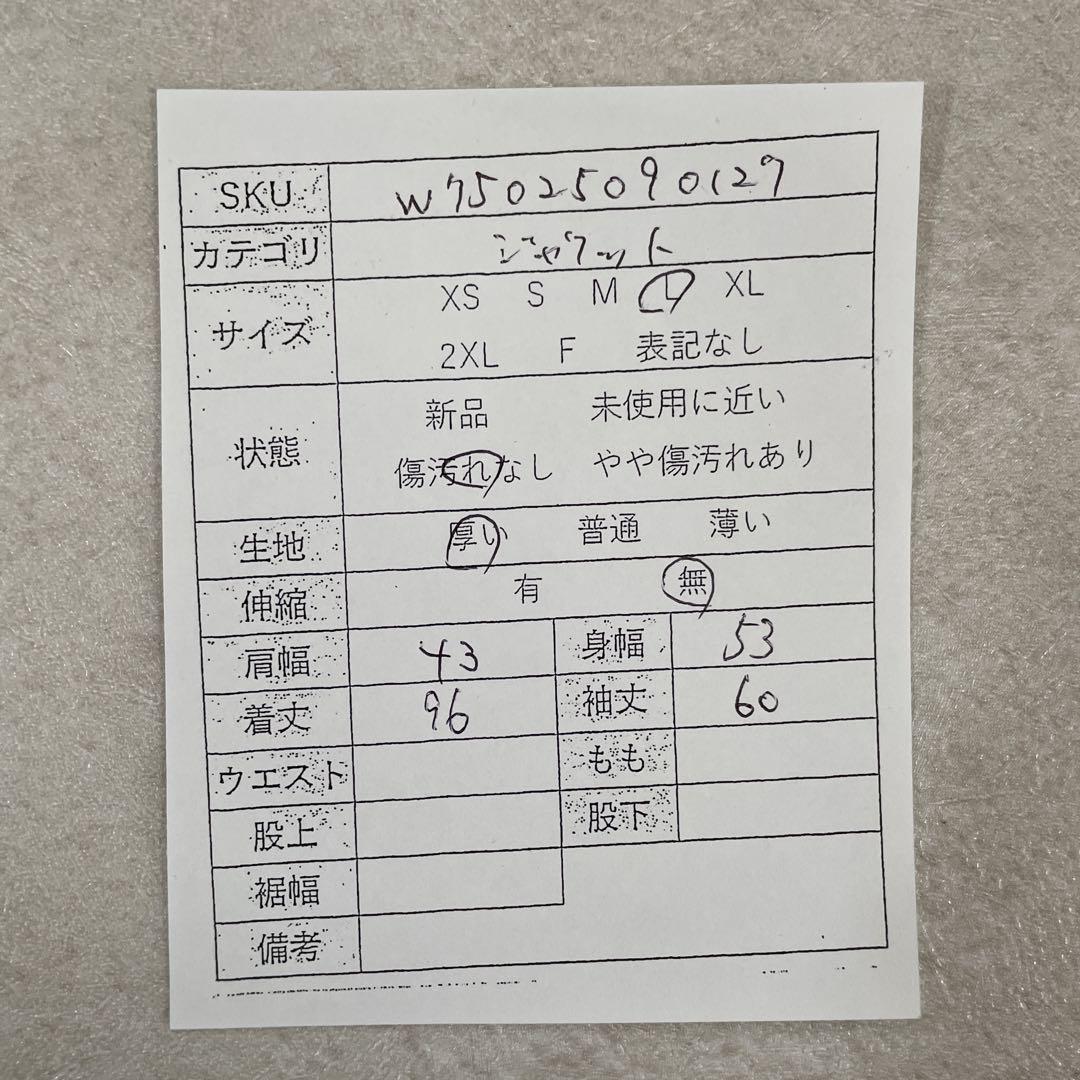 SKU W75025090127
カテゴリ ジャケット
サイズ XS S M L XL
2XL F 表記なし
状態 新品 未使用に近い
傷汚れなし やや傷汚れあり
生地 厚い 普通 薄い
伸縮 有 無
肩幅 43 身幅 53
着丈 96 袖丈 60
ウエスト もも
股上 股下
裾幅
備考